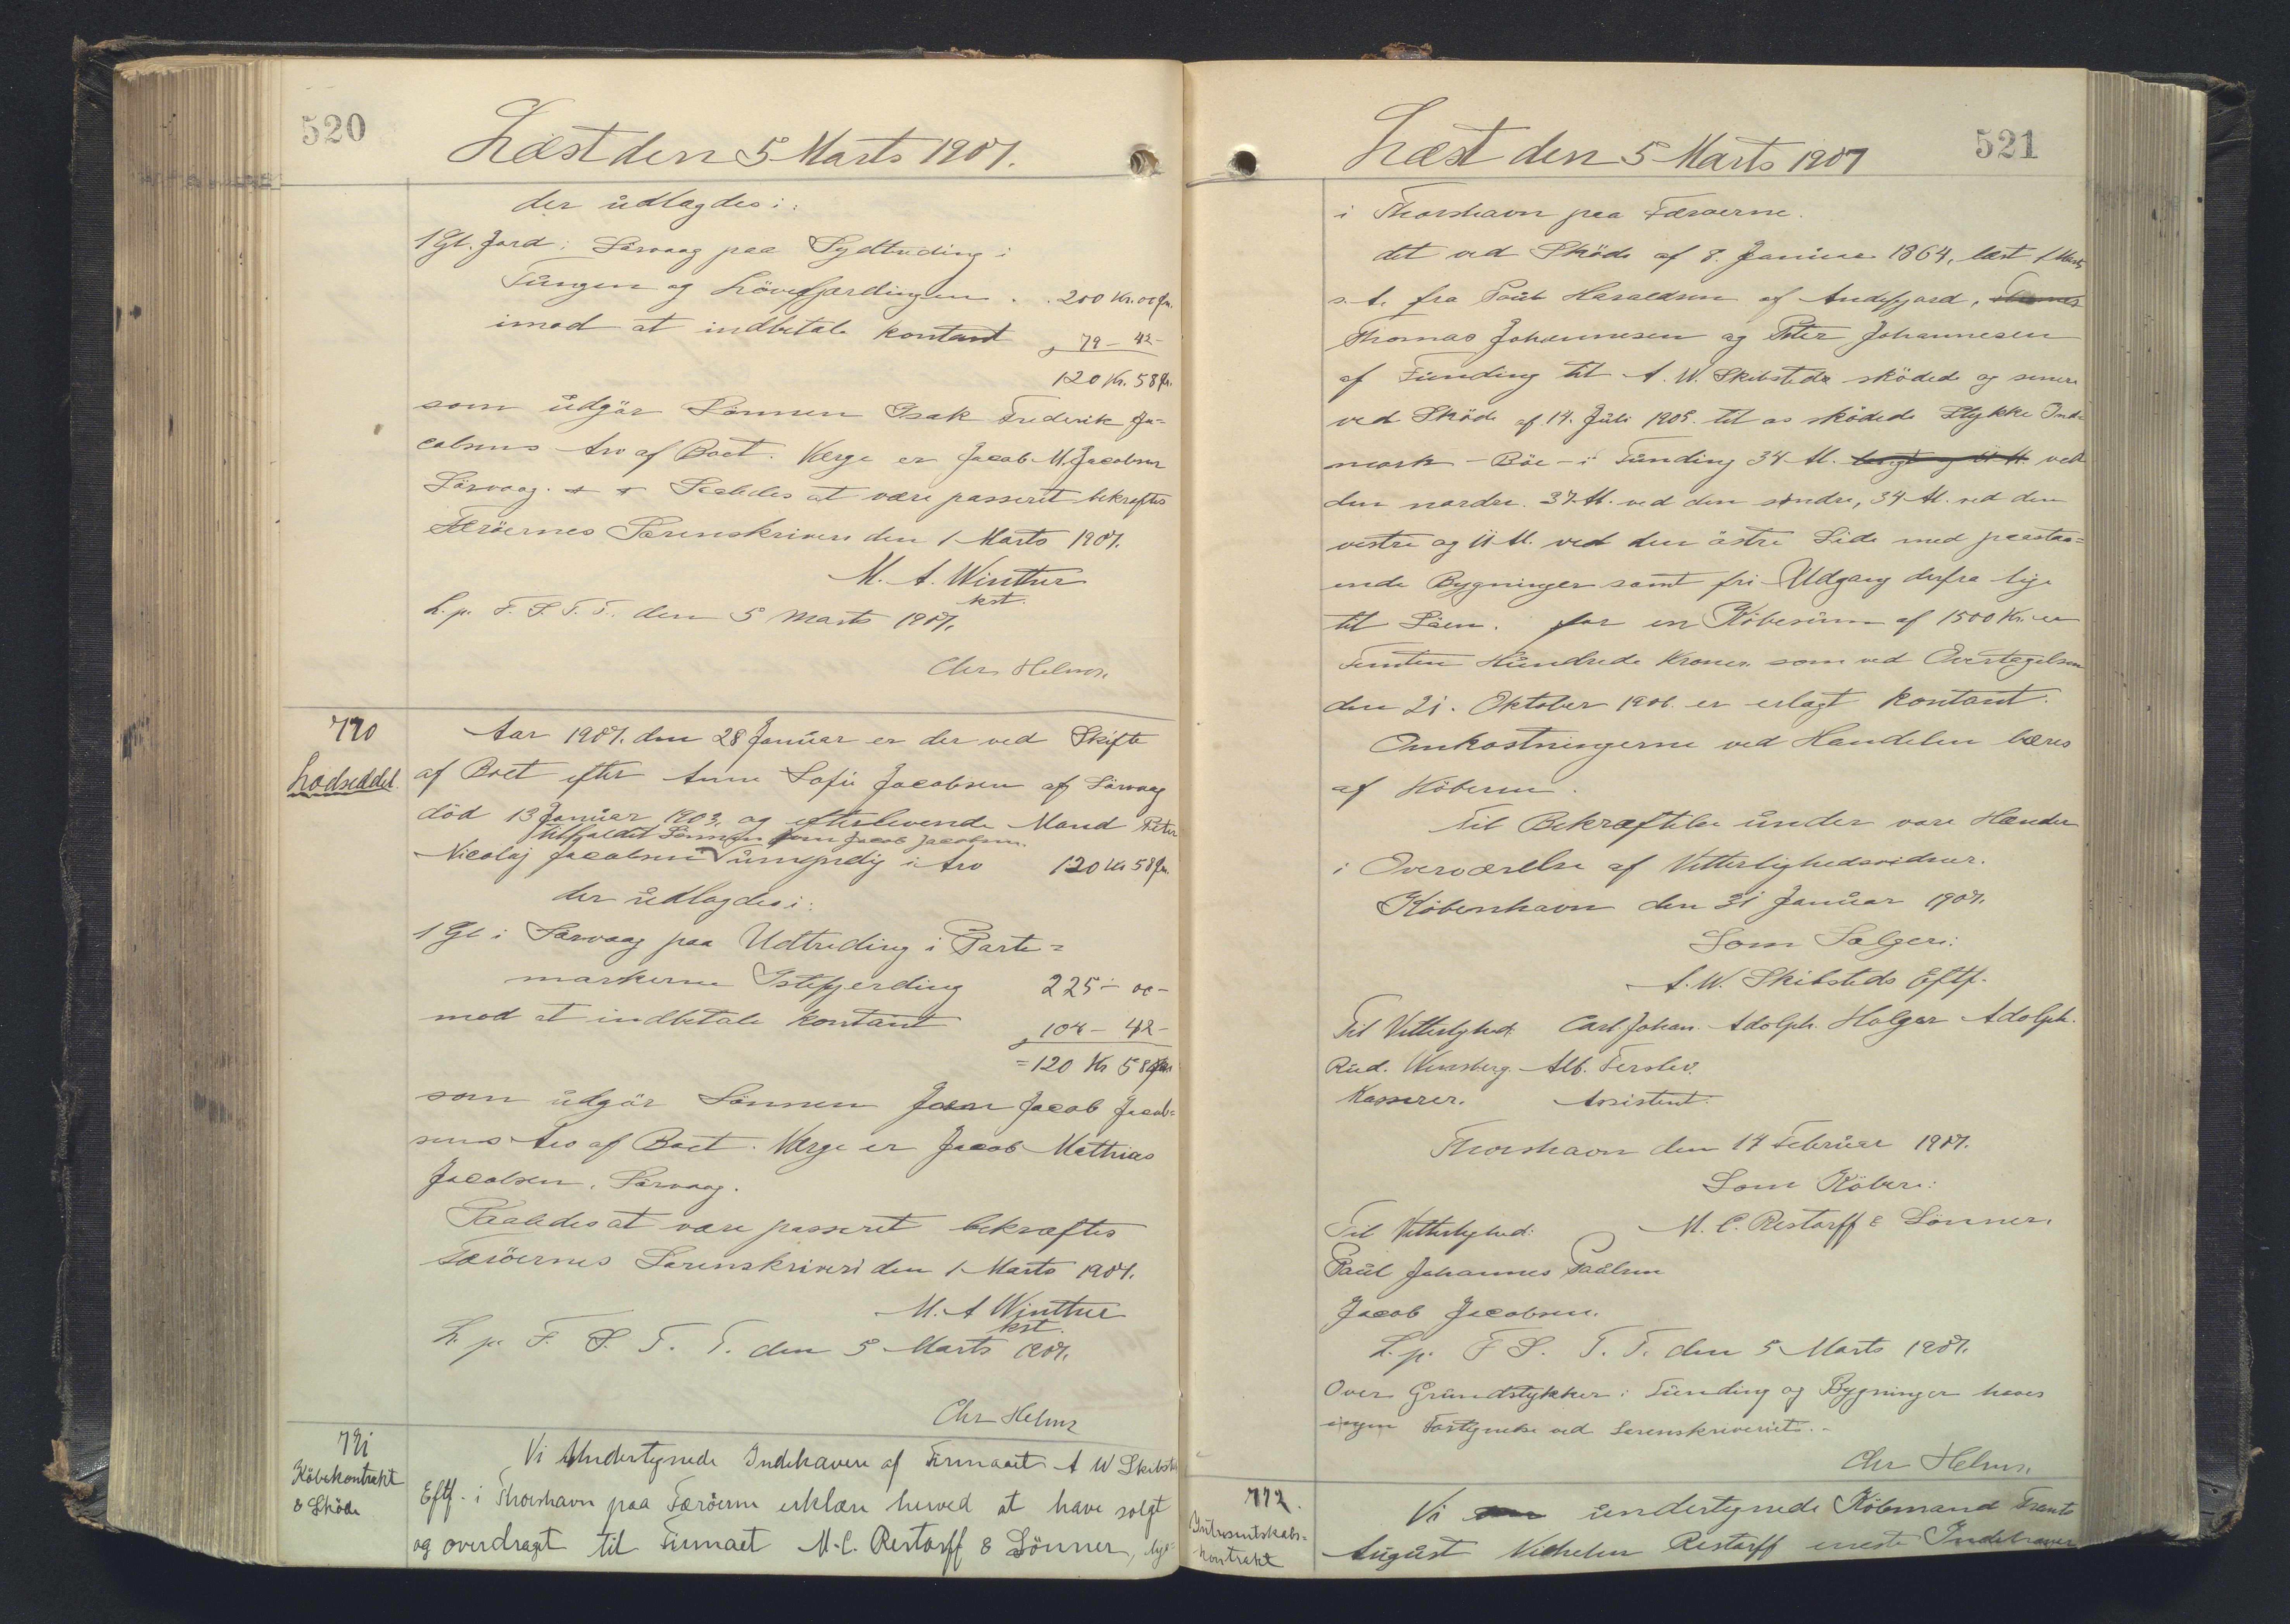 520
Læst den 5 Marts 1907.
der udlagdes i:
1 Gl. Jord i Sørvaag paa Sydtriding i
Tungen og Løvefjærdingen . . 200 Kr. 00 Ør.
imod at indbetale kontant 79 - 42 -
120 Kr. 58 Ør.
som udgør Sønnen Isak Frederik Ja-
cobsens Arv af Boet. Værge er Jacob M. Jacobsen
Sørvaag. Saaledes at være passeret bekræftes
Færøernes Sorenskriveri den 1 Marts 1907.
M. A. Winther
kst.
L. p. F. S. T. T. den 5 Marts 1907.
Chr Helms.
770
Lodseddel.
Aar 1907. den 28 Januar er der ved Skifte
af Boet efter Anne Sofie Jacobsen af Sørvaag
død 13 Januar 1903. og efterlevende Mand Peter
tilfaldet Sønnen Joen Jacob Jacobsen.
Nicolaj Jacobsen umyndig i Arv 120 Kr 58 Ør.
der udlagdes i:
1 Gl i Sørvaag paa Udtriding i Parte-
markerne Istefjerding 225 - 00 -
mod at indbetale kontant 104 - 42 -
= 120 Kr 58 Ør
som udgør Sønnen Joen Jacob Jacob-
sens Arv af Boet. Værge er Jacob Mathias
Jacobsen, Sørvaag.
Saaledes at være passeret bekræftes
Færøernes Sorenskriveri den 1 Marts 1907.
M. A Winther
kst.
L. p. F. S. T. T. den 5 Marts 1907.
Chr Helms
771
Købekontrakt
& Skøde
Vi Undertegnede Indehavere af Firmaet A W Skibsteds
Eftf. i Thorshavn paa Færøerne erklære herved at have solgt
og overdraget til Firmaet M. C. Restorff & Sønner,
521
Læst den 5 Marts 1907
i Thorshavn paa Færøerne.
det ved Skøde af 8. Januar 1864, læst 1 Marts
s. A. fra Poul Haraldsen af Andefjord,
Thomas Johannesen og Peter Johannesen
af Funding til A. W. Skibsted skødede og senere
ved Skøde af 14. Juli 1905. til os skødede Stykke Ind-
mark - Bøe - i Funding 34 Al. ved
den nordre. 37 Al. ved den søndre, 34 Al. ved den
vestre og 11 Al. ved den østre Side med paastaa-
ende Bygninger samt fri Udgang derfra lige
til Søen. for en Købesum af 1500 Kr. er
Femten Hundrede Kroner, som ved Overtagelsen
den 21. Oktober 1906. er erlagt kontant.
Omkostningerne ved Handelen bæres
af Køberen.
Til Bekræftelse under vore Hænder
i Overværelse af Vitterlighedsvidner.
København den 31 Januar 1907.
Som Sælgere:
A. W. Skibsteds Eftf.
Til Vitterlighed: Carl Johan Adolph. Holger Adolph.
Rud. Wensberg. Alb. Ferslev.
Kasserer. Assistent.
Thorshavn den 14 Februar 1907.
Som Købere:
Til Vitterlighed: M. C. Restorff & Sønner.
Paul Johannes Paulsen
Jacob Jacobsen.
L. p. F S. T. T. den 5 Marts 1907.
Over Grundstykker i Funding og Bygninger haves
ingen Fortegnelse ved Sorenskriveriet.
Chr Helms.
772.
Interesentskabs-
kontrakt
Vi undertegnede Købmand Frants
August Vilhelm Restorff eneste Indehaver